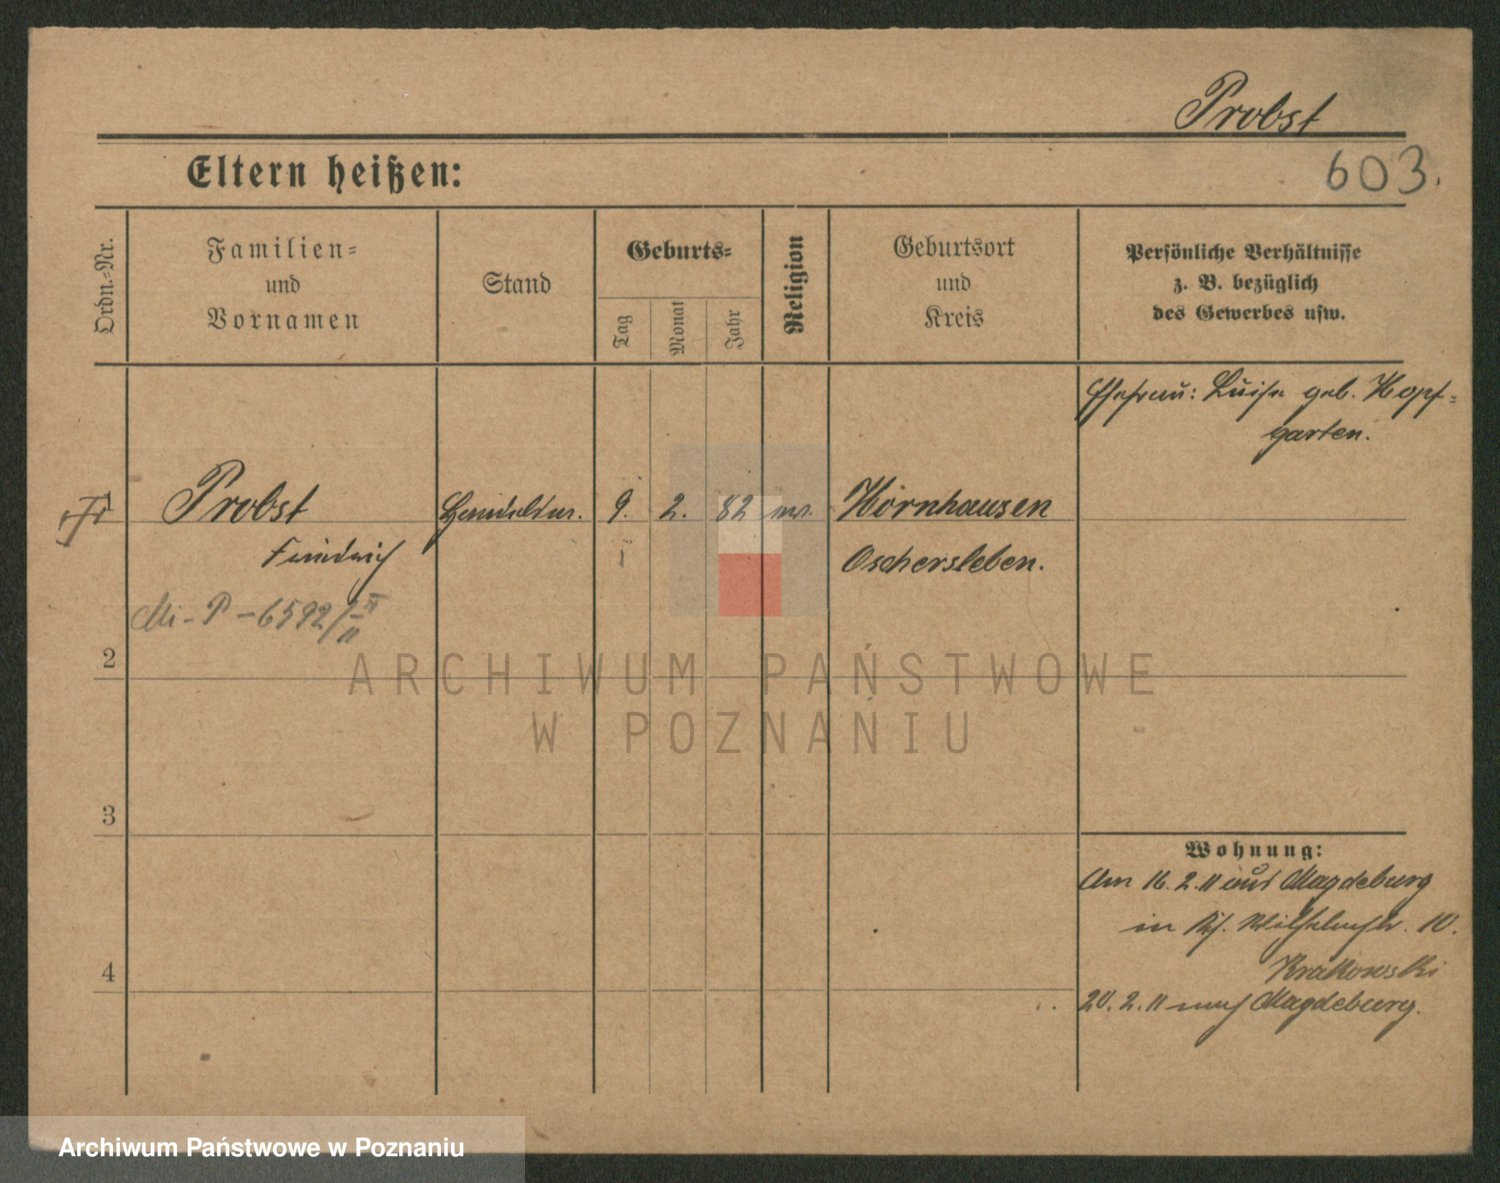 Probst
Eltern heißen:
603.
Ordn.-Nr.
Familien-
und
Vornamen
Stand
Geburts-
Tag
Monat
Jahr
Religion
Geburtsort
und
Kreis
Persönliche Verhältnisse
z. B. bezüglich
des Gewerbes usw.
Ehefrau: Luise geb. Hopf-
garten.
1
Probst
9.
2.
82
Hornhausen
Friedrich
Oschersleben.
Mi - P - 6592/
2
3
4
Wohnung:
Am 16. 2. 11 aus Magdeburg
in Wilhelmstr. 10.
Krakowski
20. 2. 11 nach Magdeburg.
ARCHIWUM PAŃSTWOWE
W POZNANIU
Archiwum Państwowe w Poznaniu